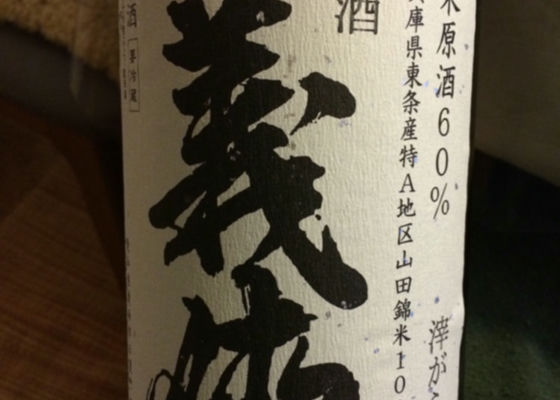 米原酒60%
滓がら
兵庫県東条産特A地区山田錦米10
酒
義侠
酒
[要冷蔵]